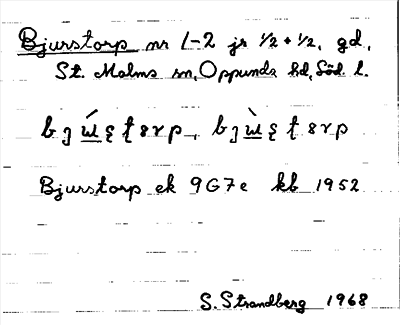 Bjurstorp nr 1-2 jr 1/2 + 1/2, gd,
St. Malms sn, Oppunda hd, Söd. l.
Bjurstorp ek 9G7e kb 1952
S. Strandberg 1968